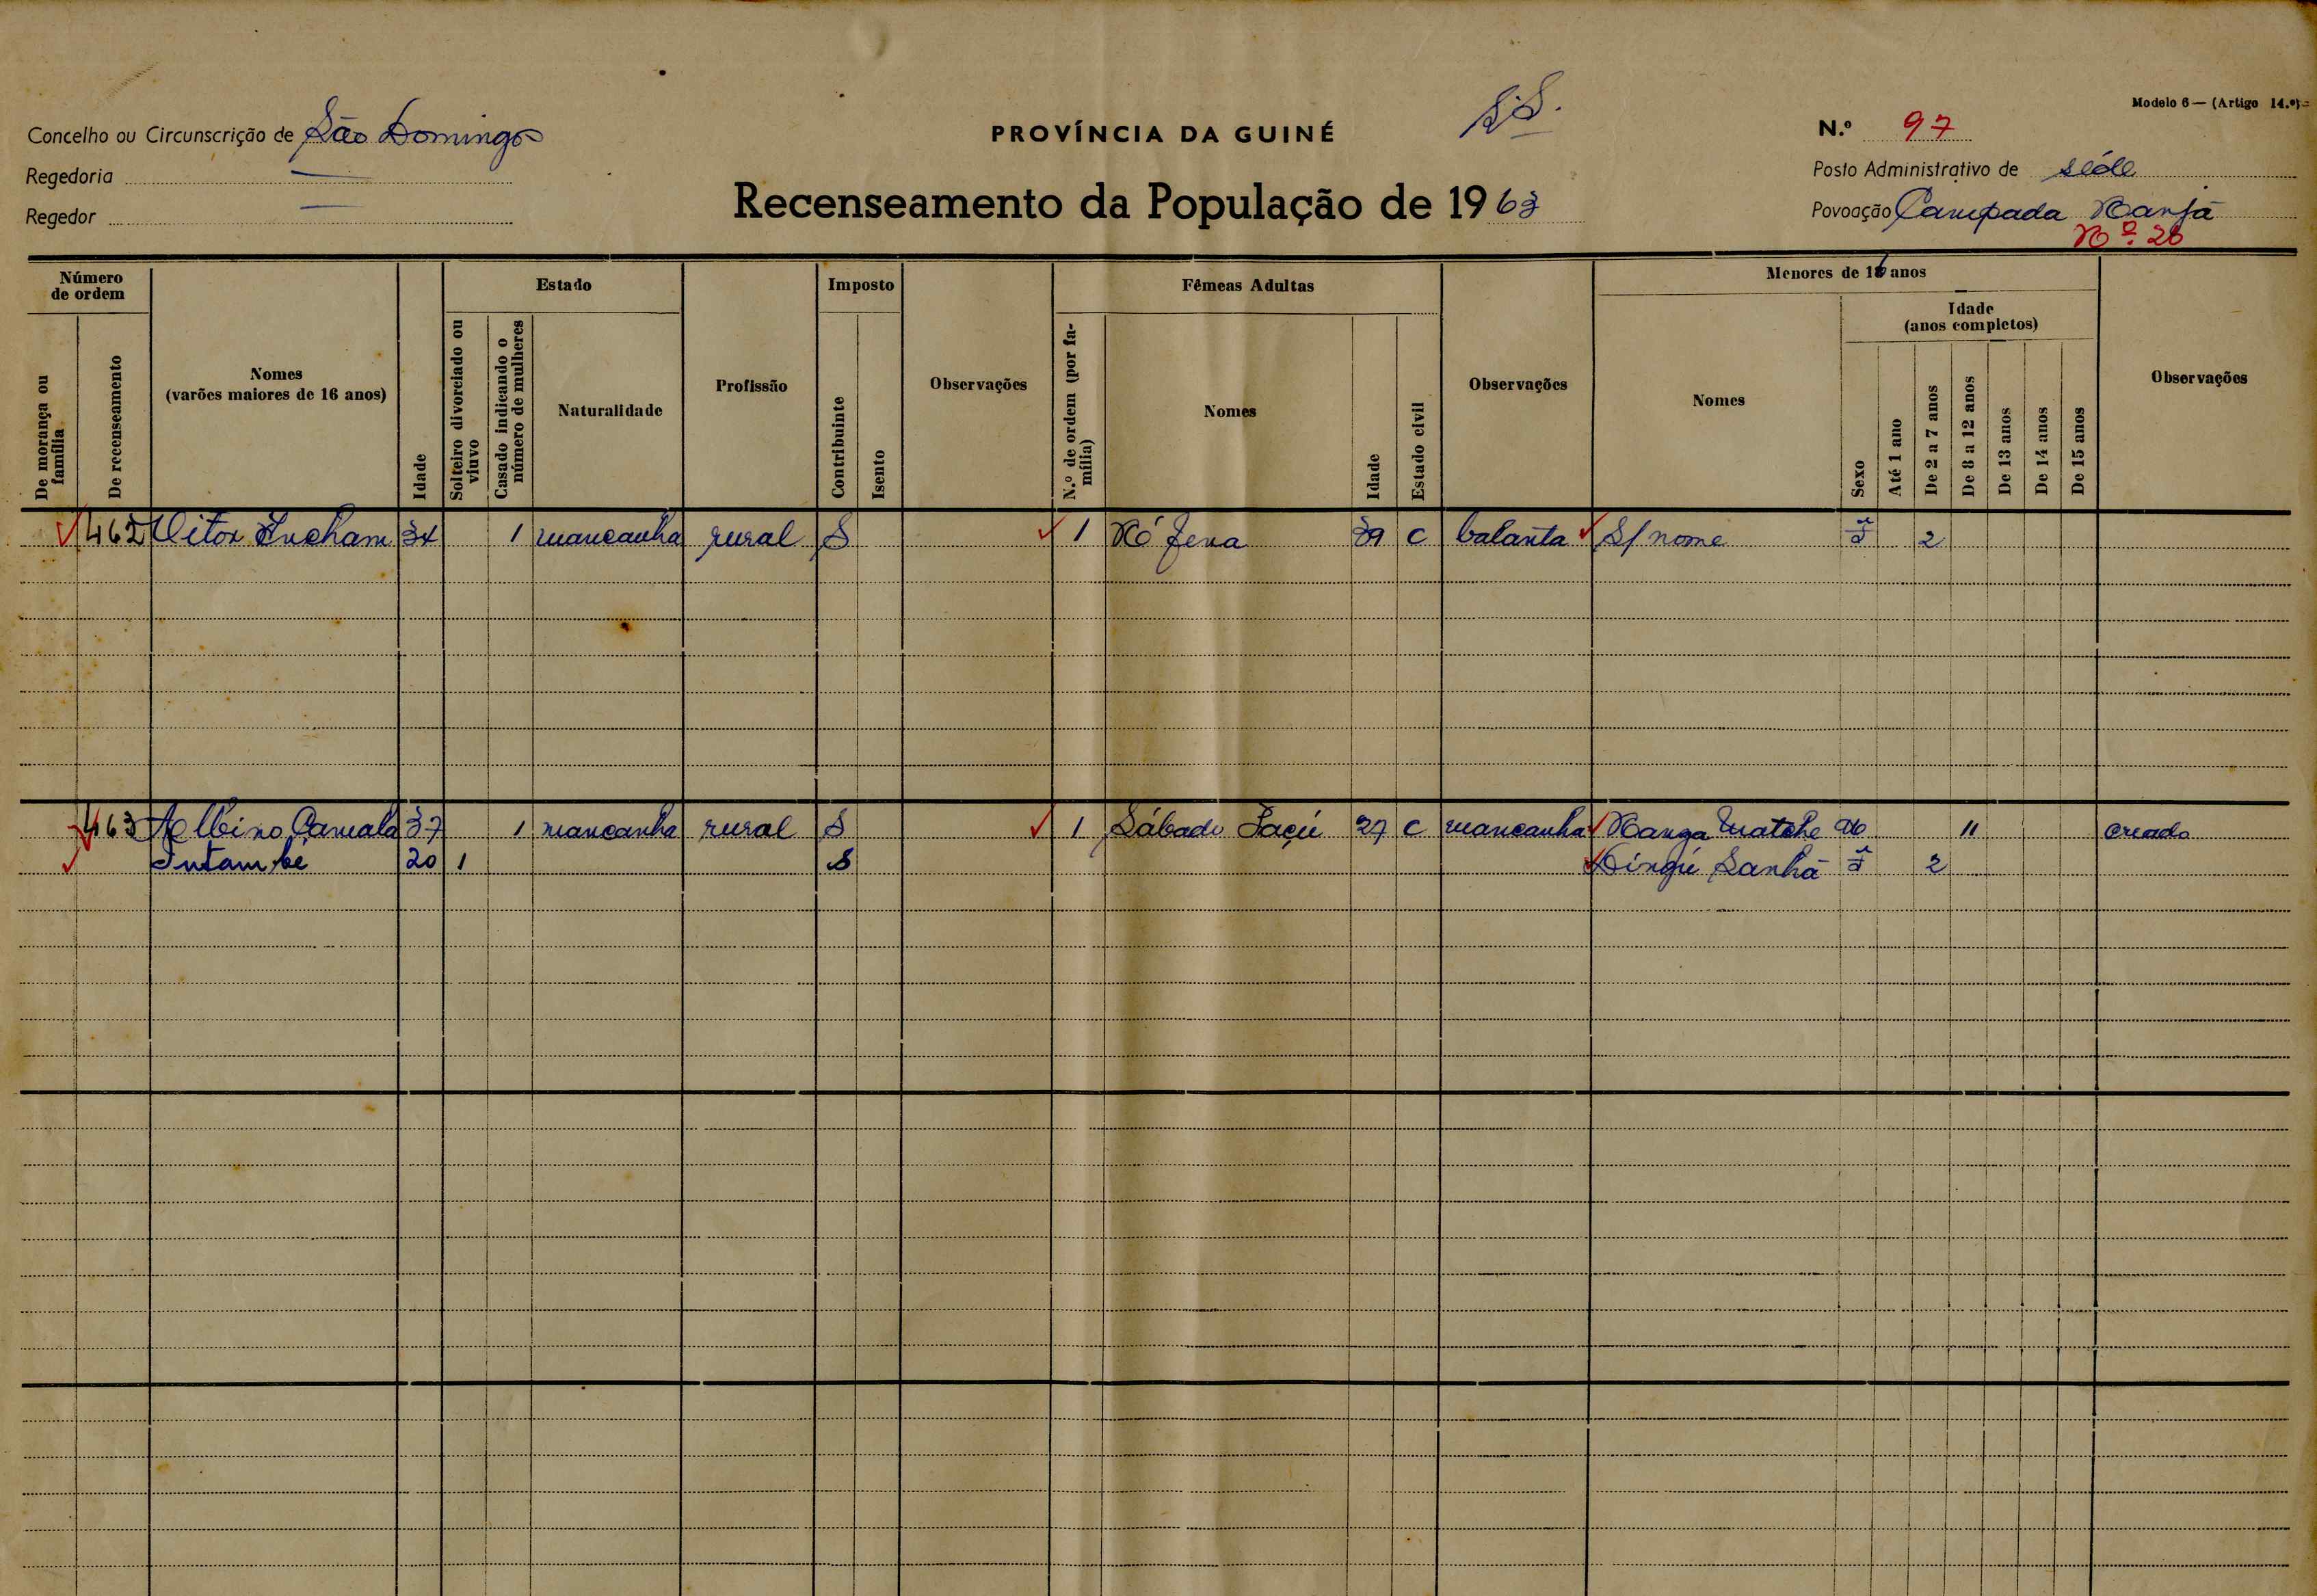 Modelo 6 — (Artigo 14.º)
Concelho ou Circunscrição de São Domingos
PROVÍNCIA DA GUINÉ
S.S.
N.º 97
Regedoria —
Posto Administrativo de séde
Regedor —
Recenseamento da População de 1963
Povoação Campada Nanjã
Nº 26
Número de ordem
Estado
Imposto
Fêmeas Adultas
Menores de 16 anos
Idade
(anos completos)
De morança ou família
De recenseamento
Nomes
(varões maiores de 16 anos)
Idade
Solteiro divorciado ou viuvo
Casado indicando o número de mulheres
Naturalidade
Profissão
Contribuinte
Isento
Observações
N.º de ordem (por família)
Nomes
Idade
Estado civil
Observações
Nomes
Sexo
Até 1 ano
De 2 a 7 anos
De 8 a 12 anos
De 13 anos
De 14 anos
De 15 anos
Observações
462 Vitor Incham 34 1 mancanha rural S 1 Nó 39 C balanta S/ nome 2
463 Albino Camala 37 1 mancanha rural S 1 Sábado 27 C mancanha Nanga Matche 11 creado
Intambé 20 1 S Dingui Sanhã 2